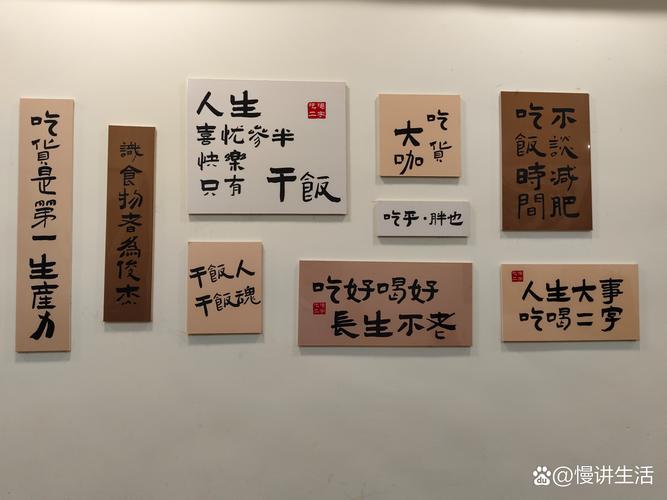 吃貨是第一生産力
識食物者為俊杰
人生
喜忧參半
快樂
只有 干飯
吃喝
二字
干飯人
干飯魂
吃貨
大咖
吃乎·胖也
吃好喝好
長生不老
不談減肥
吃飯時間
人生大事
吃喝二字
@慢讲生活